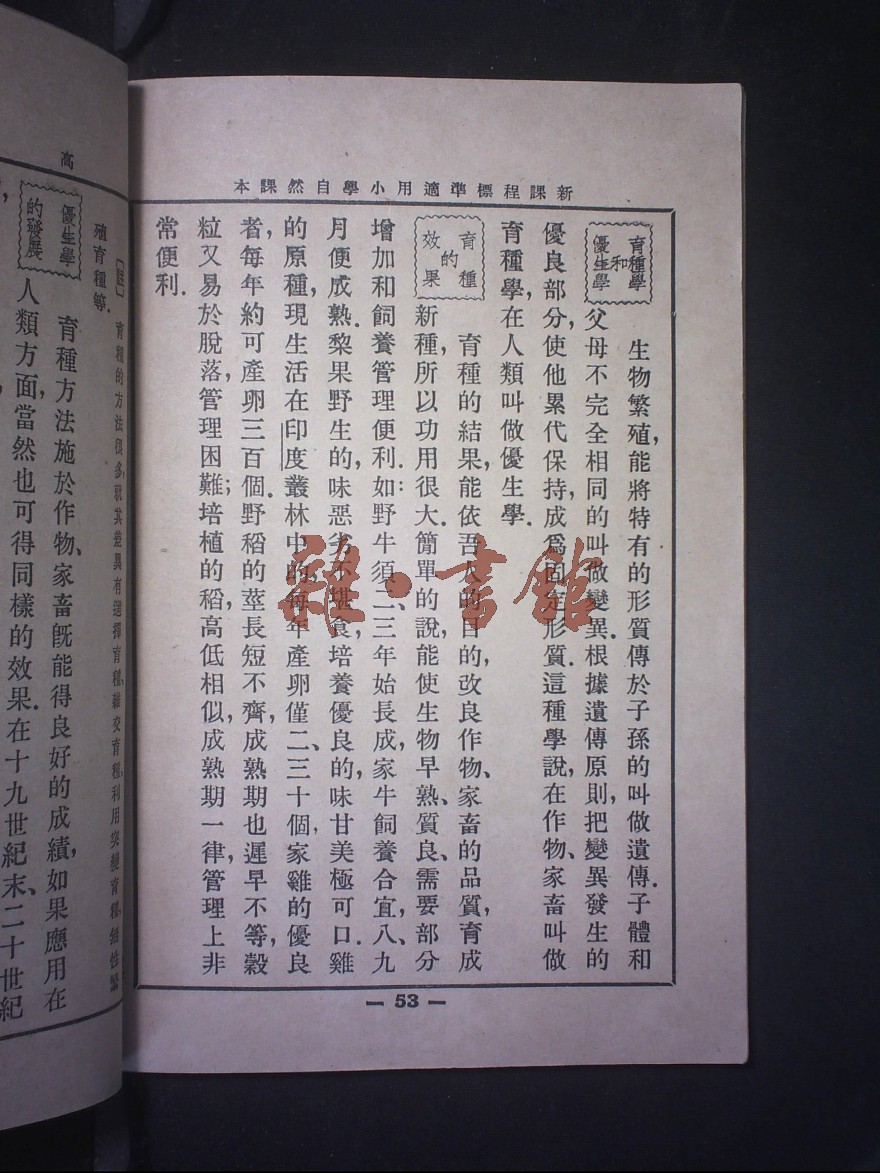 新課程標準適用小學自然課本
育種學
和
優生學
生物繁殖,能將特有的形質傳於子孫的叫做遺傳.子體和
父母不完全相同的叫做變異.根據遺傳原則,把變異發生的
優良部分,使他累代保持,成爲固定形質.這種學說,在作物、家畜叫做
育種學,在人類叫做優生學.
育種
的
效果
育種的結果,能依吾人的目的,改良作物、家畜的品質,育成
新種,所以功用很大.簡單的說,能使生物早熟、質良、需要部分
增加和飼養管理便利.如:野牛須二、三年始長成,家牛飼養合宜,八、九
月便成熟.黎果野生的,味惡劣不堪食,培養優良的,味甘美極可口.雞
的原種,現生活在印度叢林中的,每年產卵僅二、三十個,家雞的優良
者,每年約可產卵三百個.野稻的莖長短不齊,成熟期也遲早不等,穀
粒又易於脫落,管理困難;培植的稻,高低相似,成熟期一律,管理上非
常便利.
— 53 —
高
[註] 育種的方法很多,就其差異有選擇育種、雜交育種、利用突變育種、無性繁
殖育種等.
優生學
的發展
育種方法施於作物、家畜旣能得良好的成績,如果應用在
人類方面,當然也可得同樣的效果.在十九世紀末、二十世紀
雜·書館